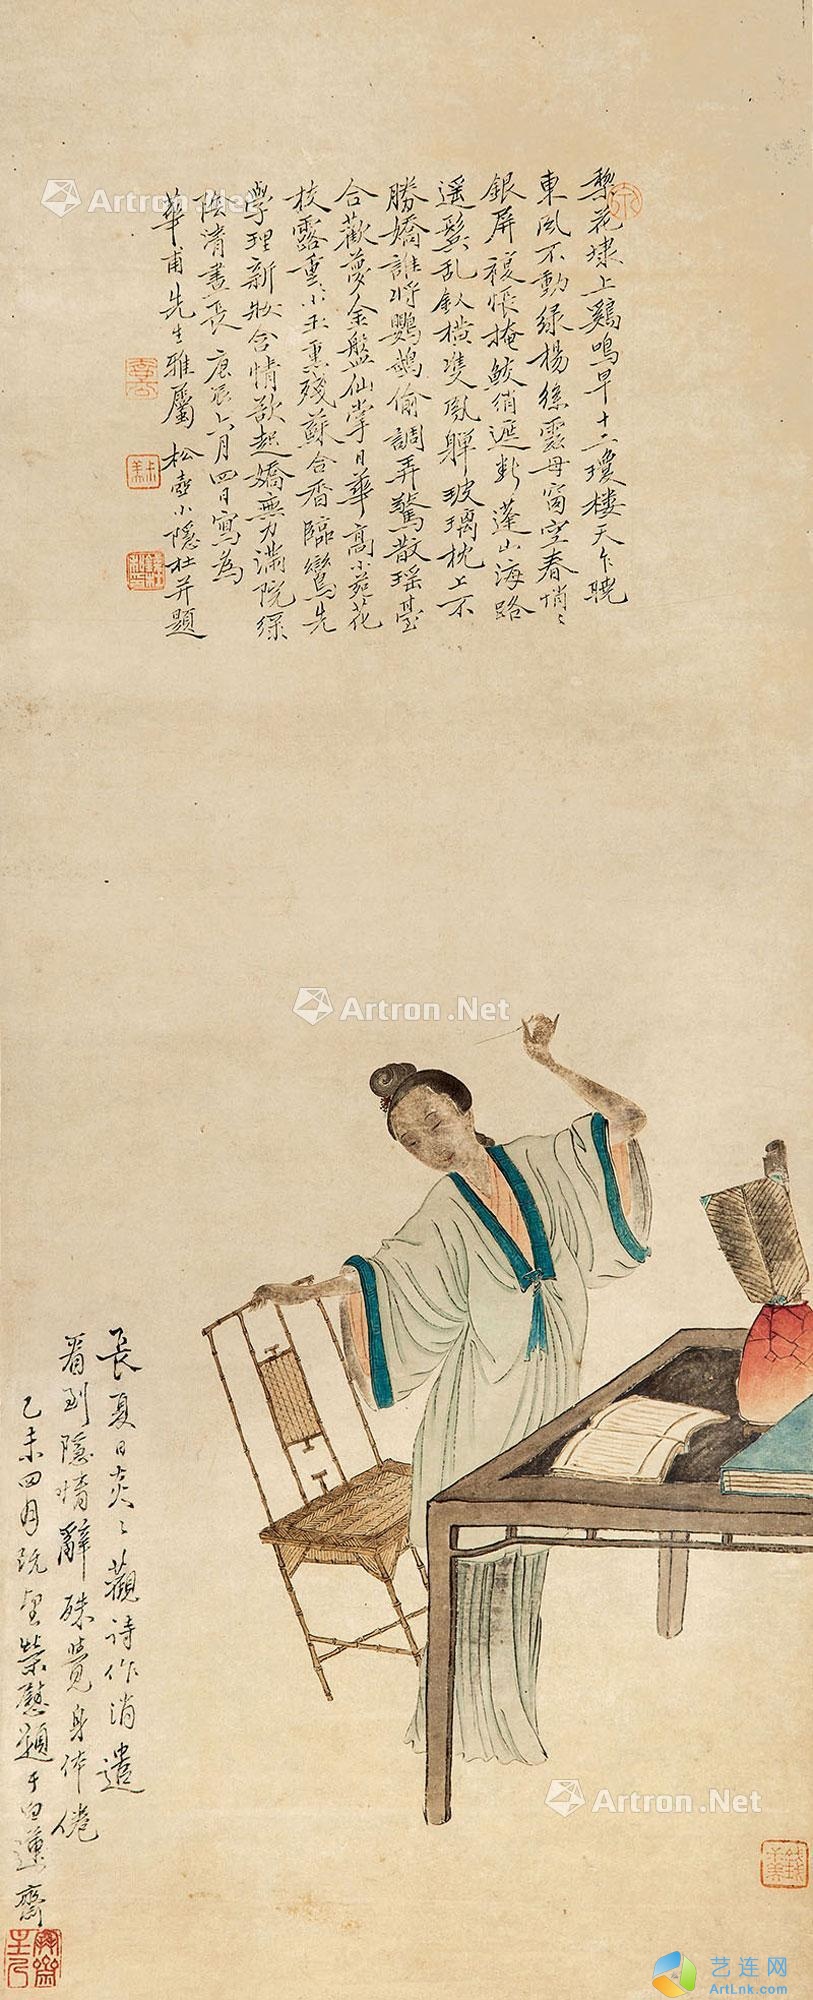 梨花埭上鷄鳴早十二瓊樓天乍曉
東風不動綠楊絲雲母窗空春悄〻
銀屏複帳掩鮫綃遮斷蓬山海路
遥鬟乱釵橫雙鳳嚲玻璃枕上不
勝嬌誰將鸚鵡偷調弄驚散瑶臺
合歡夢金盤仙掌日華高小苑花
枝露重〻小玉熏殘蘇合香臨鸞先
學理新妝含情欲起嬌無力滿院綠
陰清晝長 庚辰六月四日寫為
華甫先生雅屬 松壺小隱杜并題
長夏日炎〻觀詩作消遣
看到隱情辭殊覺身体倦
乙未四月阮望榮慰題于白蓮齋
Artron.Net
Artron.Net
Artron.Net
Artron.Net
艺连网
ArtLnk.Com